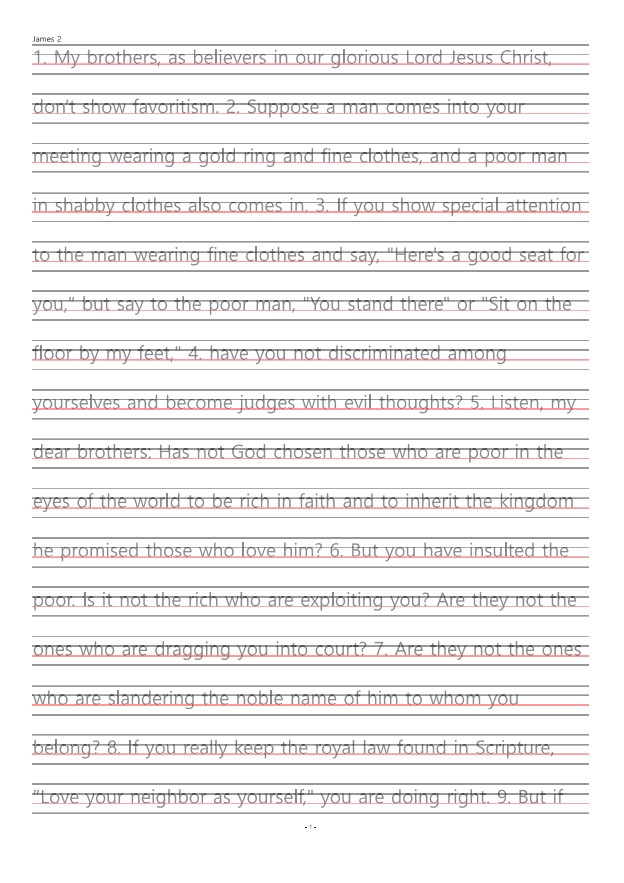 James 2
1. My brothers, as believers in our glorious Lord Jesus Christ,
don't show favoritism. 2. Suppose a man comes into your
meeting wearing a gold ring and fine clothes, and a poor man
in shabby clothes also comes in. 3. If you show special attention
to the man wearing fine clothes and say, "Here's a good seat for
you," but say to the poor man, "You stand there" or "Sit on the
floor by my feet," 4. have you not discriminated among
yourselves and become judges with evil thoughts? 5. Listen, my
dear brothers: Has not God chosen those who are poor in the
eyes of the world to be rich in faith and to inherit the kingdom
he promised those who love him? 6. But you have insulted the
poor. Is it not the rich who are exploiting you? Are they not the
ones who are dragging you into court? 7. Are they not the ones
who are slandering the noble name of him to whom you
belong? 8. If you really keep the royal law found in Scripture,
"Love your neighbor as yourself," you are doing right. 9. But if
- 1 -